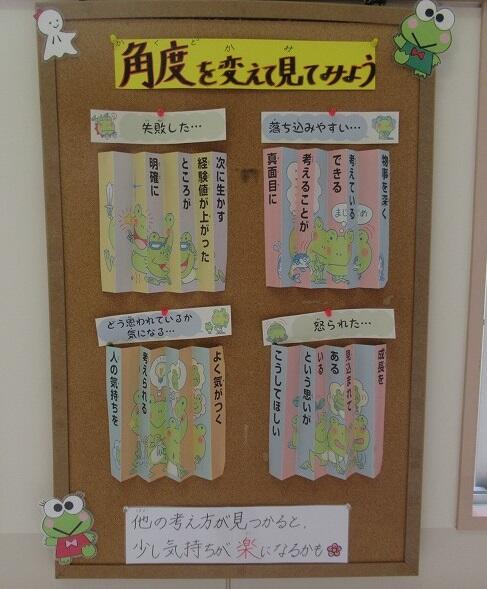 かくど か み
角度を変えて見てみよう
失敗した…
次に生かす
経験値が上がった
ところが
明確に
落ち込みやすい…
物事を深く
考えている
できる
考えることが
真面目に
どう思われているか
気になる…
よく気がつく
考えられる
人の気持ちを
怒られた…
成長を
見込まれて
ある
いる
という思いが
こうしてほしい
他の考え方が見つかると、
少し気持ちが楽になるかも